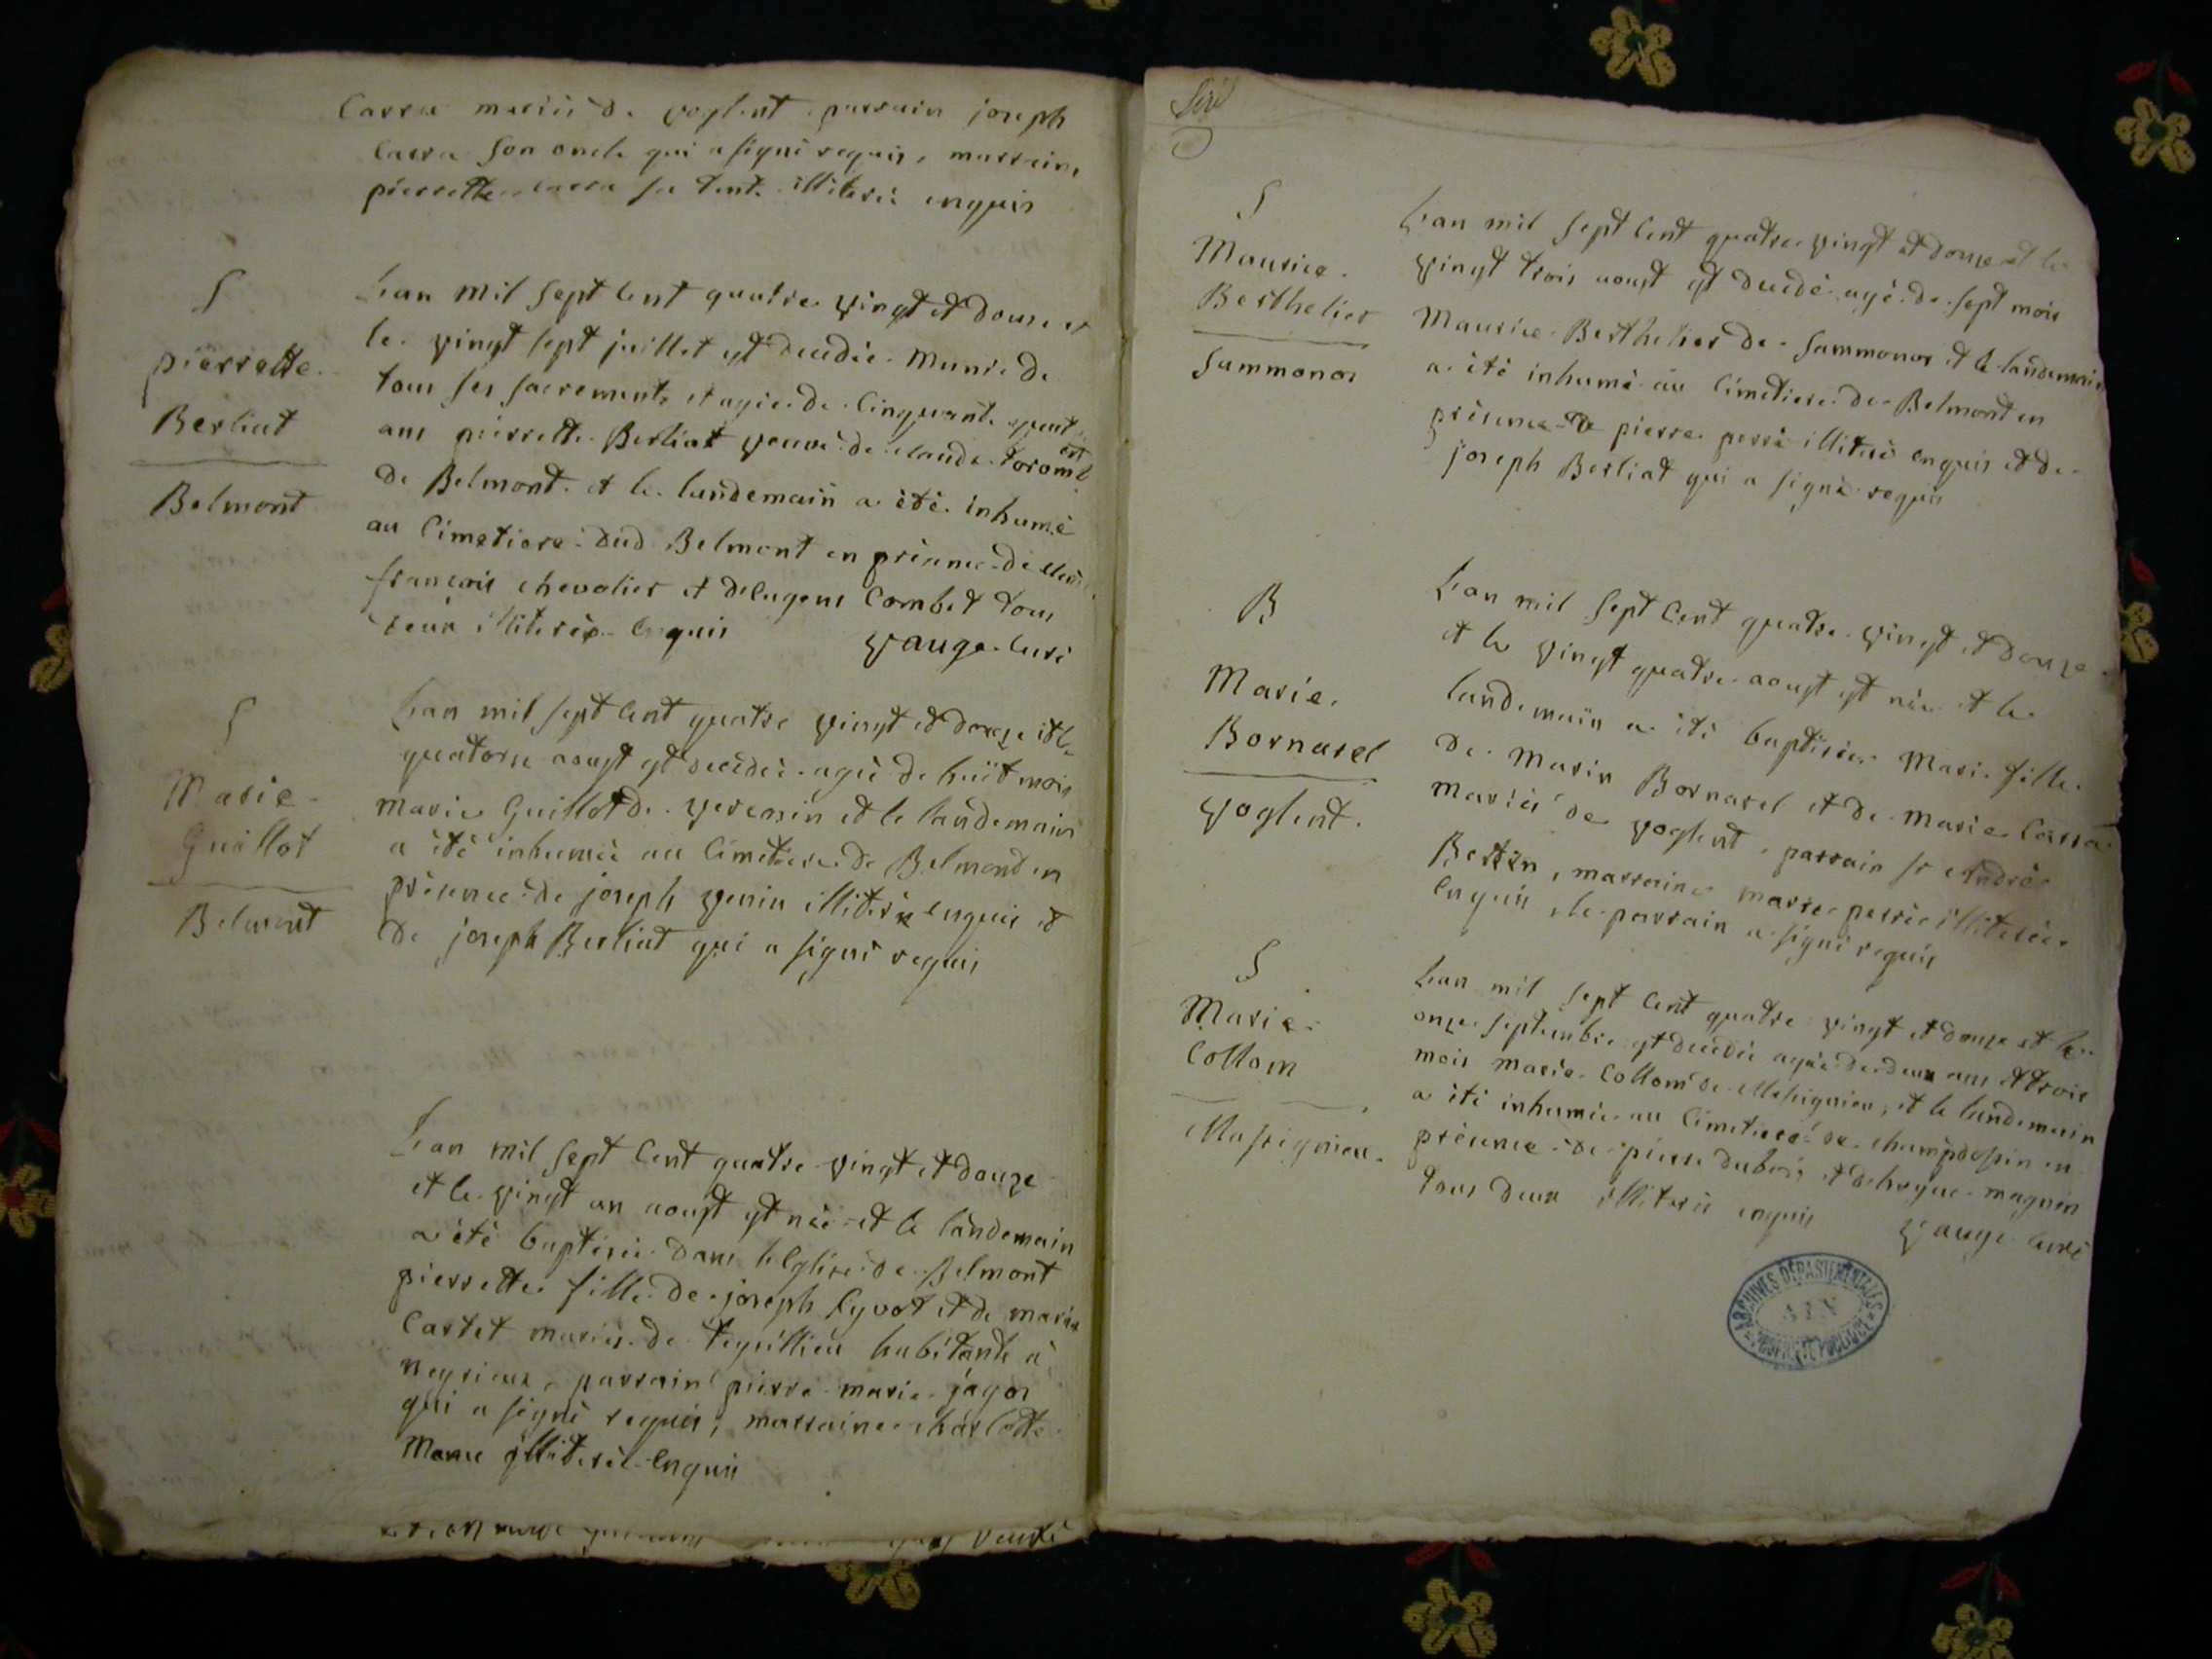 Carra mariés de voglent parrain joseph
Carra son oncle qui a signé requis, marraine
pierrette carra sa tente illiterée enquis
S
pierrette
Berliat
Belmont
Lan mil sept Cent quatre vingt et douze et
le vingt sept juillet est decedée munie de
tous ses sacrements et agée de Cinquante
ans pierrette Berliat veuve de claude
de Belmont et le landemain a été inhumé
au Cimetiere dud Belmont en présence de
françois chevalier et deugene Combet tous
deux illiterés enquis vauge Curé
S
Marie
Guillot
Belmont
Lan mil sept Cent quatre vingt et douze et le
quatorse aoust est decedée agée de huit mois
marie Guillot de veressin et le landemain
a été inhumée au Cimetiere de Belmont en
présence de joseph venin illiteré enquis et
de joseph Berliat qui a signé requis
Lan mil sept Cent quatre vingt et douze
et le vingt un aoust est née et le landemain
a été baptisée dans leglise de Belmont
pierrette fille de joseph Cyvot et de marie
Cartet mariés de teguillieu habitants a
negrieux, parrain pierre marie jagos
qui a signé requis, marraine charlotte
illiterée Enquis
S
Maurice
Berthelier
Sammonos
Lan mil sept Cent quatre vingt et douze et le
vingt trois aoust est decedé agé de sept mois
Maurice Berthelier de Sammonos et le landemain
a été inhumé au Cimetiere de Belmont en
présence de pierre perré illiteré enquis et de
joseph Berliat qui a signé requis
B
Marie
Bornarel
voglent.
Lan mil sept Cent quatre vingt et douze
et le vingt quatre aoust est née et le
landemain a été baptisée Marie fille
de Marin Bornarel et de Marie Carra
mariés de voglent, parrain sr André
Bertin, marraine marie perrée illiterée
Enquis, le parrain a signé requis
S
Marie
Collom
Massignieu
Lan mil sept Cent quatre vingt et douze et le
onze septembre est decedée agée de deux ans et trois
mois marie Collom de Massignieu, et le landemain
a été inhumée au Cimetiere de champdossin en
présence de pierre dubois et dehugue magnin
tous deux illiterés enquis vauge Curé
ARCHIVES DÉPARTEMENTALES
AIN